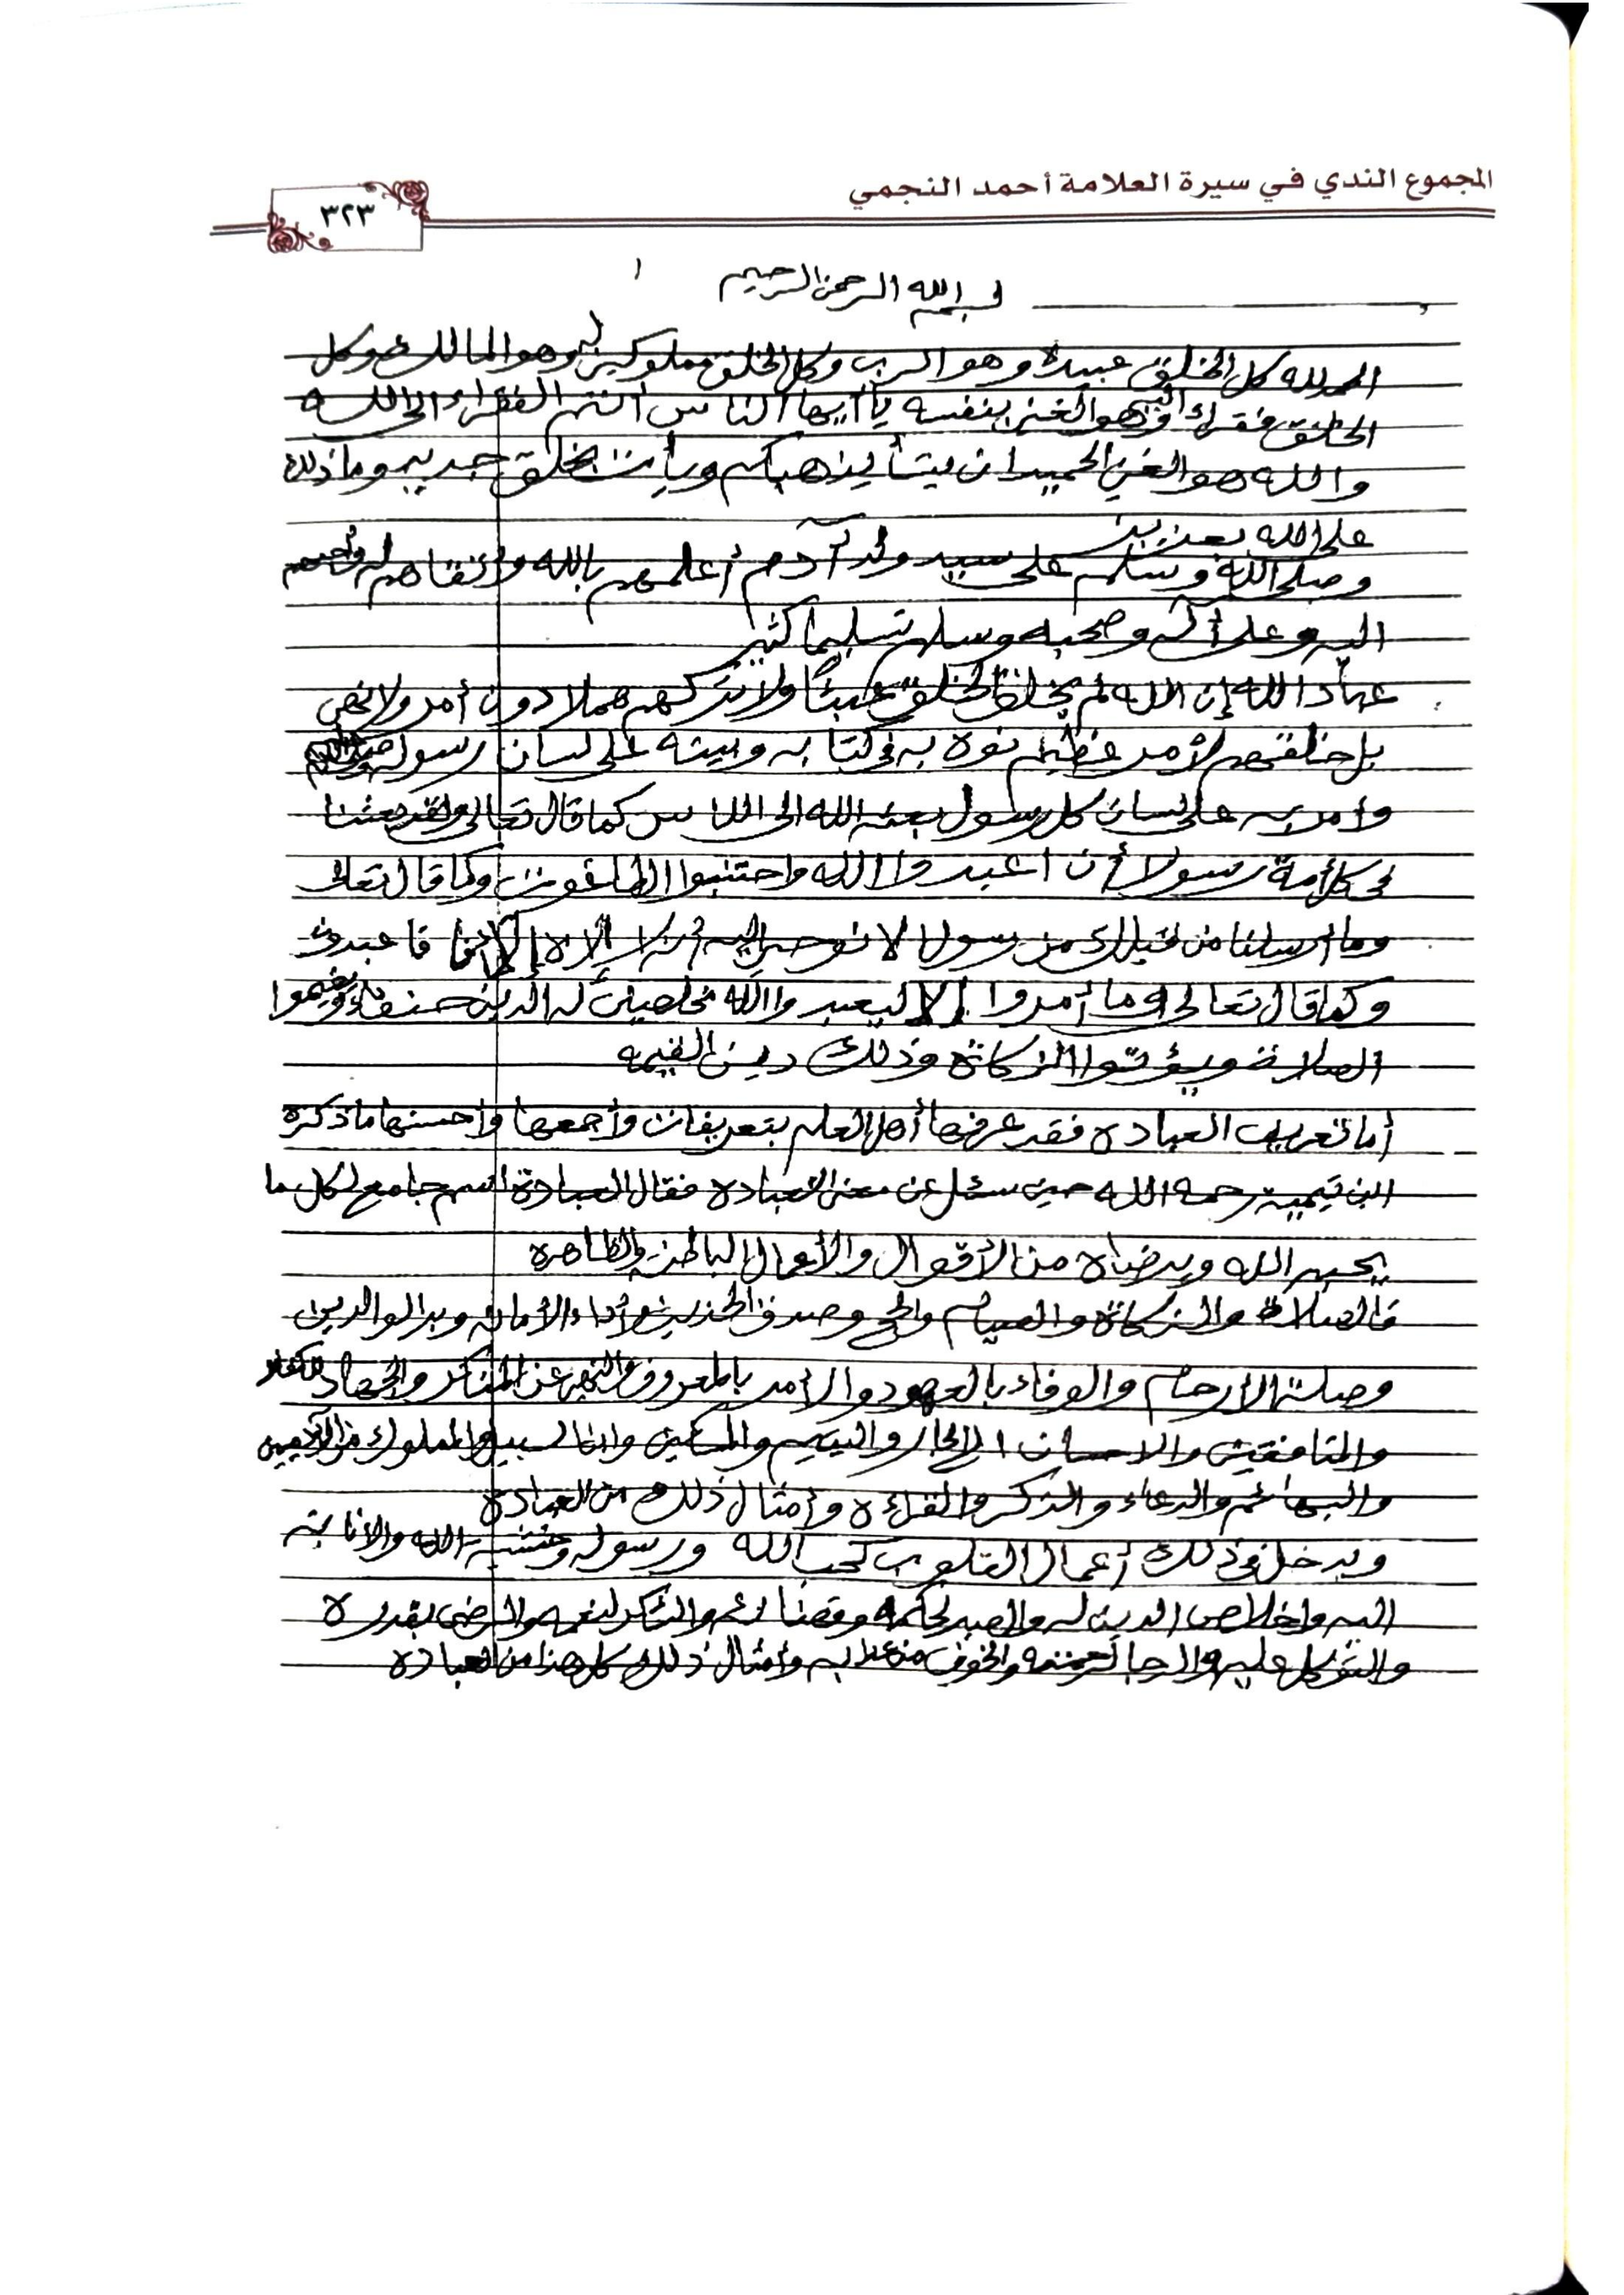 المجموع الندي في سيرة العلامة أحمد النجمي
٣٢٣
١
بسم الله الرحمن الرحيم
الحمد لله كل الخلق عبيده وهو الرب وكل الخلق مملوكين له وهو المالك وكل
الخلق فقراء إليه وهو الغني بنفسه يا أيها الناس أنتم الفقراء إلى الله
والله هو الغني الحميد ان يشأ يذهبكم ويأت بخلق جديد وما ذلك
على الله بعزيز
وصلى الله وسلم على سيد ولد آدم أعلمهم بالله وأتقاهم له وأحبهم
اليه وعلى آله وصحبه وسلم تسليما كثير
عباد الله إن الله لم يخلق الخلق عبثا ولا يتركهم هملا دون أمر ولا نهي
بل خلقهم لأمر عظيم نوه به في كتابه وبينه على لسان رسوله
وامر به على لسان كل رسول بعثه الله الى الناس كما قال تعالى ولقد بعثنا
في كل أمة رسولا أن اعبدوا الله واجتنبوا الطاغوت وكما قال تعالى
وما أرسلنا من قبلك من رسول الا نوحي إليه أنه لا إله إلا أنا فاعبدون
وكما قال تعالى وما أمروا إلا ليعبدوا الله مخلصين له الدين حنفاء ويقيموا
الصلاة ويؤتوا الزكاة وذلك دين القيمه
أما تعريف العباده فقد عرفها أهل العلم بتعريفات وأجمعها وأحسنها ما ذكره
ابن تيمية رحمه الله حين سئل عن معنى العباده فقال العبادة اسم جامع لكل ما
يحبه الله ويرضاه من الأقوال والأعمال الباطنه والظاهره
فالصلاة والزكاة والصيام والحج وصدق الحديث وأداء الأمانه وبر الوالدين
وصلة الأرحام والوفاء بالعهود والأمر بالمعروف والنهي عن المنكر والجهاد للكفار
والمنافقين والاحسان الى الجار واليتيم والمسكين وابن السبيل والمملوك من الآدميين
والبهائم والدعاء والذكر والقراءه وأمثال ذلك من العبادة
ويدخل في ذلك أعمال القلوب كحب الله ورسوله وخشية الله والانابة
اليه واخلاص الدين له والصبر لحكمه وقضائه والشكر لنعمه والرضى بقدره
والتوكل عليه والرجا لرحمته والخوف من عذابه وأمثال ذلك كل هذا من العباده